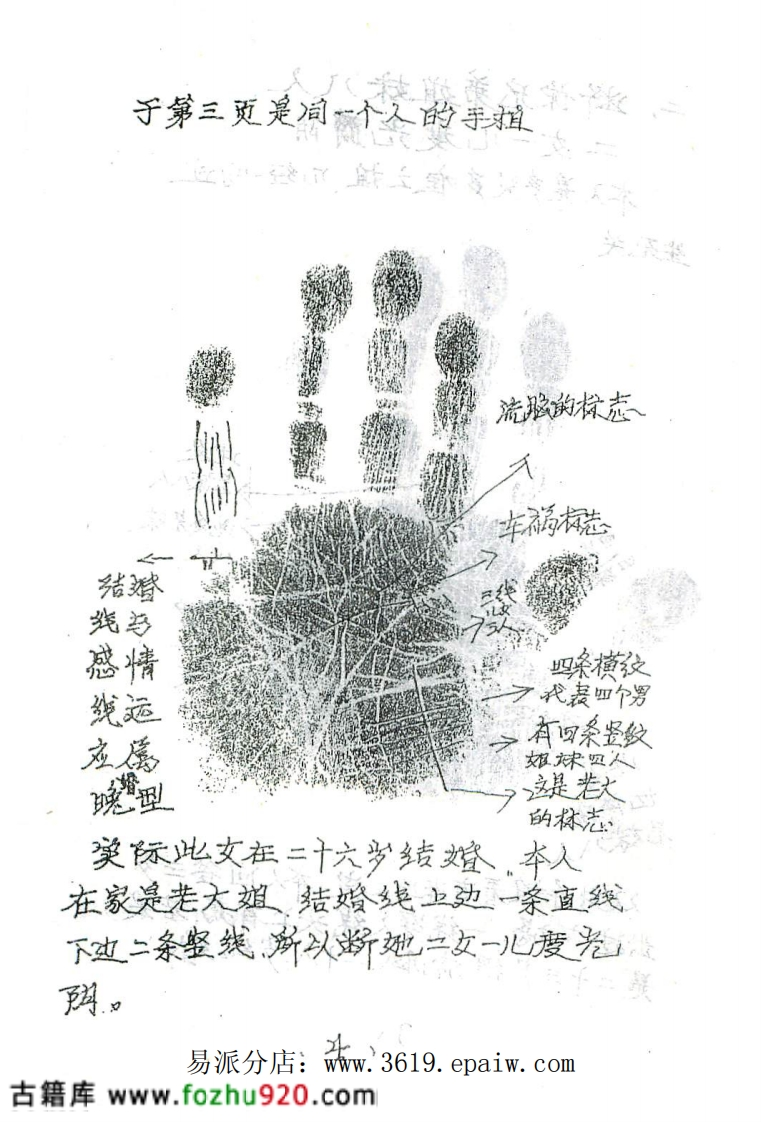 于第三页是同一个人的手相
流脑的标志
车祸标志
三线
儿女
三人
四条横纹
代表四个男
有四条竖纹
姐妹四人
这是老大
的标志
结婚
线与
感情
线远
应属
晚婚型
实际此女在二十六岁结婚。本人
在家是老大姐 结婚线上边一条直线
下边二条竖线、所以断她二女一儿度光
阴。
易派分店：www.3619.epaiw.com
古籍库 www.fozhu920.com